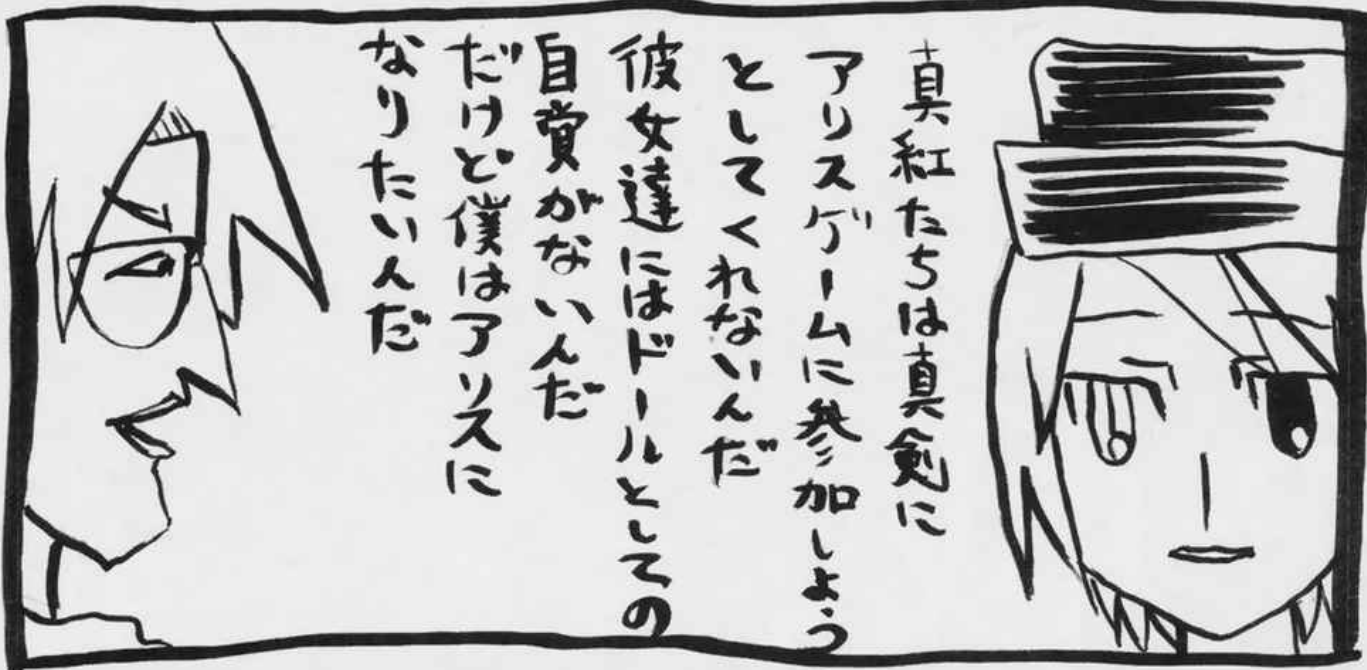 真紅たちは真剣に
アリスゲームに参加しよう
としてくれないんだ
彼女達にはドールとしての
自賞がないんだ
だけど僕はアリスに
なりたいんだ